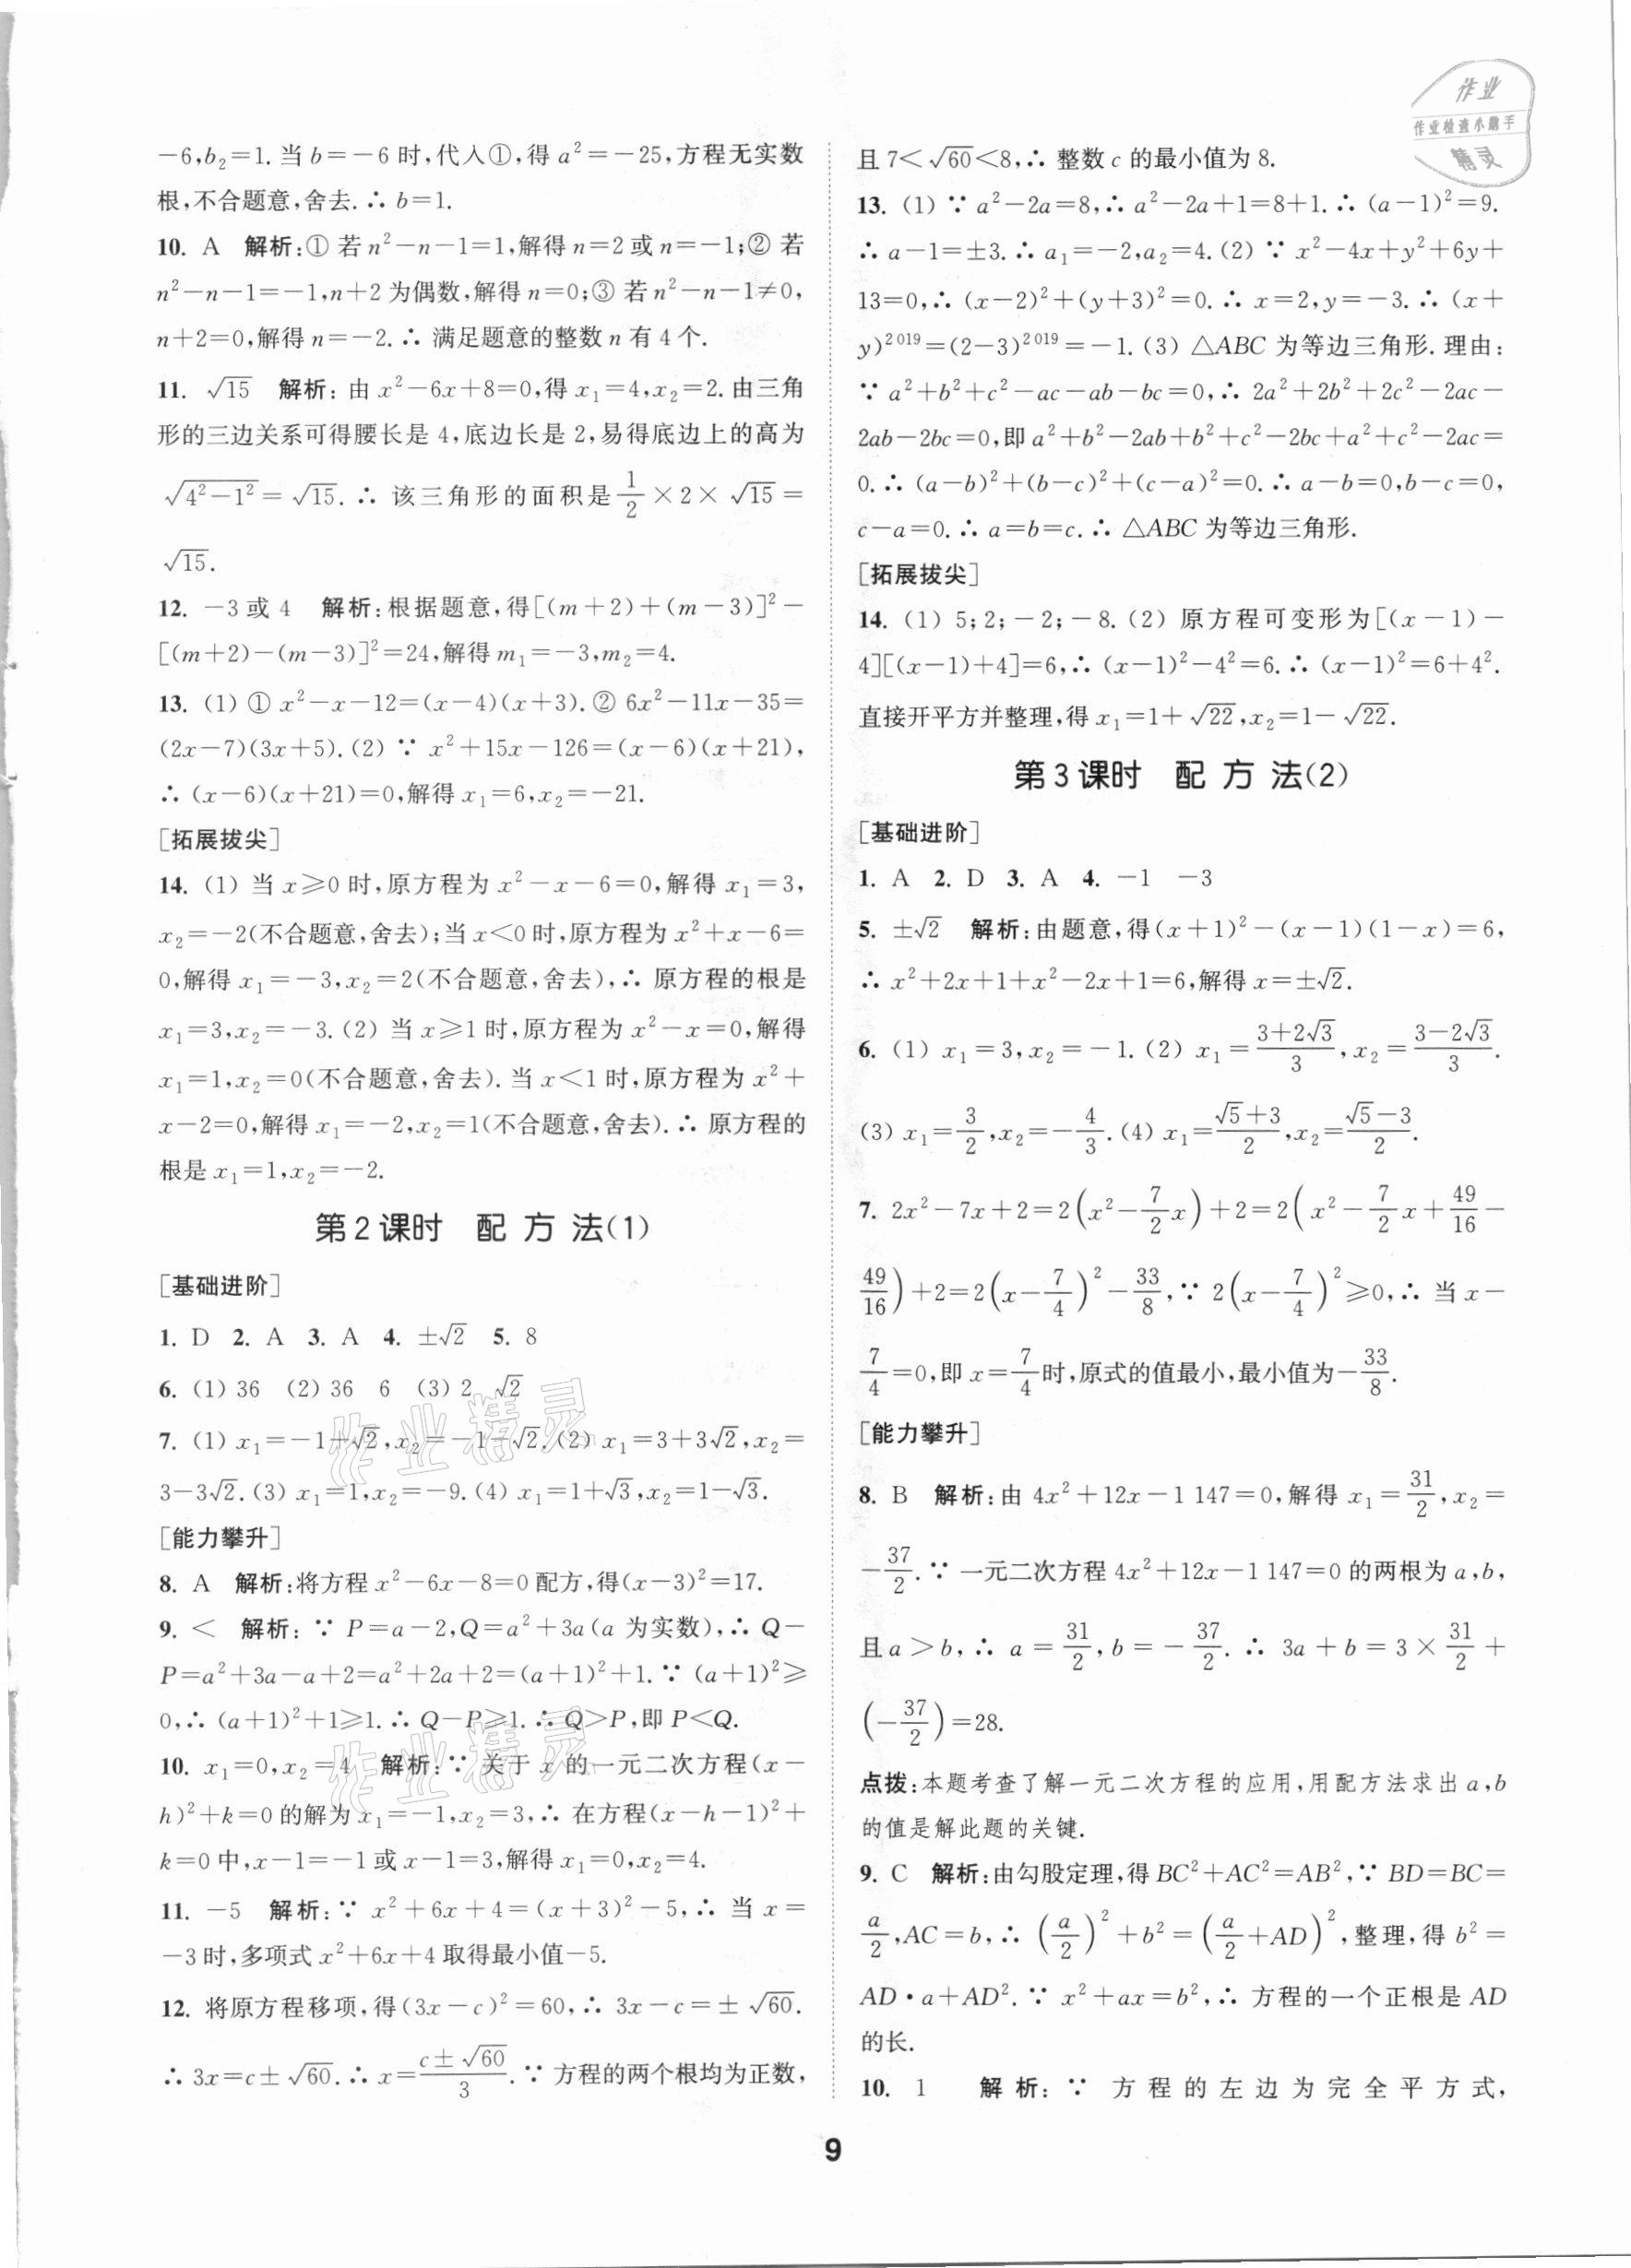 作业
作业检查小助手
精灵
-6,b₂=1.当b=-6时,代入①,得a²=-25,方程无实数
根,不合题意,舍去.∴b=1.
10. A 解析:①若n²-n-1=1,解得n=2或n=-1;②若
n²-n-1=-1,n+2为偶数,解得n=0;③若n²-n-1≠0,
n+2=0,解得n=-2.∴满足题意的整数n有4个.
11. √15 解析:由x²-6x+8=0,得x₁=4,x₂=2.由三角
形的三边关系可得腰长是4,底边长是2,易得底边上的高为
√(4²-1²)=√15.∴该三角形的面积是1/2×2×√15=
√15.
12. -3或4 解析:根据题意,得[(m+2)+(m-3)]²-
[(m+2)-(m-3)]²=24,解得m₁=-3,m₂=4.
13. (1)①x²-x-12=(x-4)(x+3).②6x²-11x-35=
(2x-7)(3x+5).(2)∵x²+15x-126=(x-6)(x+21),
∴(x-6)(x+21)=0,解得x₁=6,x₂=-21.
[拓展拔尖]
14. (1)当x≥0时,原方程为x²-x-6=0,解得x₁=3,
x₂=-2(不合题意,舍去);当x<0时,原方程为x²+x-6=
0,解得x₁=-3,x₂=2(不合题意,舍去),∴原方程的根是
x₁=3,x₂=-3.(2)当x≥1时,原方程为x²-x=0,解得
x₁=1,x₂=0(不合题意,舍去).当x<1时,原方程为x²+
x-2=0,解得x₁=-2,x₂=1(不合题意,舍去).∴原方程的
根是x₁=1,x₂=-2.
第2课时 配方法(1)
[基础进阶]
1. D 2. A 3. A 4. ±√2 5. 8
6. (1)36 (2)36 6 (3)2 √2
7. (1)x₁=-1+√2,x₂=-1-√2.(2)x₁=3+3√2,x₂=
3-3√2.(3)x₁=1,x₂=-9.(4)x₁=1+√3,x₂=1-√3.
[能力攀升]
8. A 解析:将方程x²-6x-8=0配方,得(x-3)²=17.
9. < 解析:∵P=a-2,Q=a²+3a(a为实数),∴Q-
P=a²+3a-a+2=a²+2a+2=(a+1)²+1.∵(a+1)²≥
0,∴(a+1)²+1≥1.∴Q-P≥1.∴Q>P,即P<Q.
10. x₁=0,x₂=4 解析:∵关于x的一元二次方程(x-
h)²+k=0的解为x₁=-1,x₂=3,∴在方程(x-h-1)²+
k=0中,x-1=-1或x-1=3,解得x₁=0,x₂=4.
11. -5 解析:∵x²+6x+4=(x+3)²-5,∴当x=
-3时,多项式x²+6x+4取得最小值-5.
12. 将原方程移项,得(3x-c)²=60,∴3x-c=±√60.
∴3x=c±√60.∴x=(c±√60)/3.∵方程的两个根均为正数,
且7<√60<8,∴整数c的最小值为8.
13. (1)∵a²-2a=8,∴a²-2a+1=8+1.∴(a-1)²=9.
∴a-1=±3.∴a₁=-2,a₂=4.(2)∵x²-4x+y²+6y+
13=0,∴(x-2)²+(y+3)²=0.∴x=2,y=-3.∴(x+
y)²⁰¹⁹=(2-3)²⁰¹⁹=-1.(3)△ABC为等边三角形.理由:
∵a²+b²+c²-ac-ab-bc=0,∴2a²+2b²+2c²-2ac-
2ab-2bc=0,即a²+b²-2ab+b²+c²-2bc+a²+c²-2ac=
0.∴(a-b)²+(b-c)²+(c-a)²=0.∴a-b=0,b-c=0,
c-a=0.∴a=b=c.∴△ABC为等边三角形.
[拓展拔尖]
14. (1)5;2;-2;-8.(2)原方程可变形为[(x-1)-
4][(x-1)+4]=6,∴(x-1)²-4²=6.∴(x-1)²=6+4².
直接开平方并整理,得x₁=1+√22,x₂=1-√22.
第3课时 配方法(2)
[基础进阶]
1. A 2. D 3. A 4. -1 -3
5. ±√2 解析:由题意,得(x+1)²-(x-1)(1-x)=6,
∴x²+2x+1+x²-2x+1=6,解得x=±√2.
6. (1)x₁=3,x₂=-1.(2)x₁=(3+2√3)/3,x₂=(3-2√3)/3.
(3)x₁=3/2,x₂=-4/3.(4)x₁=(√5+3)/2,x₂=(√5-3)/2.
7. 2x²-7x+2=2(x²-7/2x)+2=2(x²-7/2x+49/16-
49/16)+2=2(x-7/4)²-33/8,∵2(x-7/4)²≥0,∴当x-
7/4=0,即x=7/4时,原式的值最小,最小值为-33/8.
[能力攀升]
8. B 解析:由4x²+12x-1 147=0,解得x₁=31/2,x₂=
-37/2.∵一元二次方程4x²+12x-1 147=0的两根为a,b,
且a>b,∴a=31/2,b=-37/2.∴3a+b=3×31/2+
(-37/2)=28.
点拨:本题考查了解一元二次方程的应用,用配方法求出a,b
的值是解此题的关键.
9. C 解析:由勾股定理,得BC²+AC²=AB²,∵BD=BC=
a/2,AC=b,∴(a/2)²+b²=(a/2+AD)²,整理,得b²=
AD·a+AD².∵x²+ax=b²,∴方程的一个正根是AD
的长.
10. 1 解析:∵方程的左边为完全平方式,
作业精灵
作业精灵
9